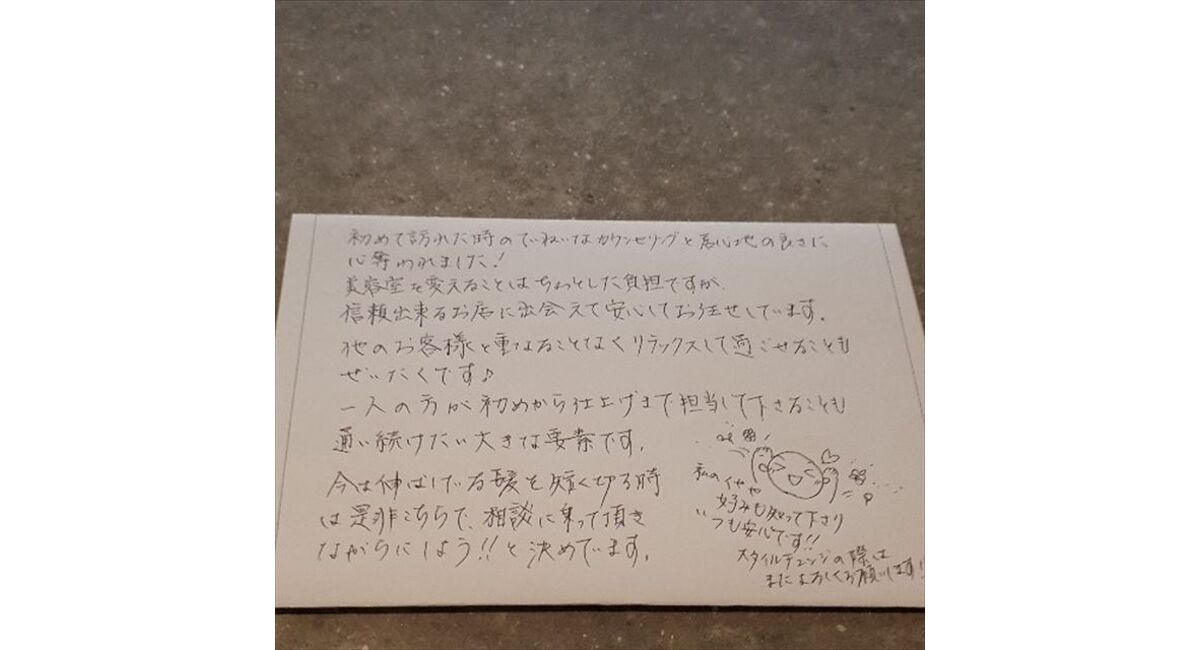 初めて訪れた時のていねいなカウンセリングと居心地の良さに
心奪われました!
美容室を変えることはちょっとした負担ですが、
信頼出来るお店に出会えて安心してお任せしています。
他のお客様と重なることなくリラックスして過ごせることも
ぜいたくです♪
一人の方が初めから仕上げまで担当して下さることも
通い続けたい大きな要素です。
今は伸ばしている髪を短く切る時
は是非こちらで、相談に乗って頂き
ながらにしよう!!と決めています。
私の
好みも知って下さり
いつも安心です!!
スタイルチェンジの際は
またよろしくお願いします!